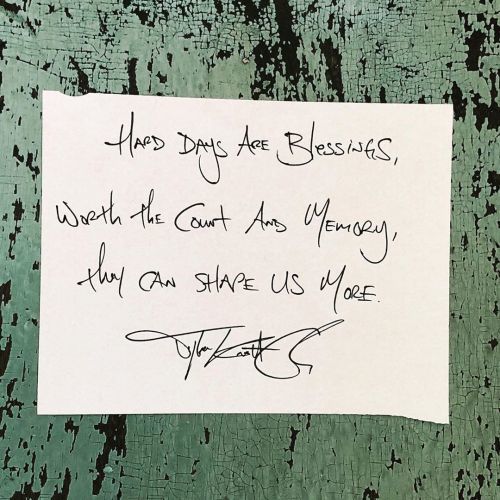 Hard Days Are Blessings,
Worth the Count And Memory,
they can shape us more.
Tyler Knott G